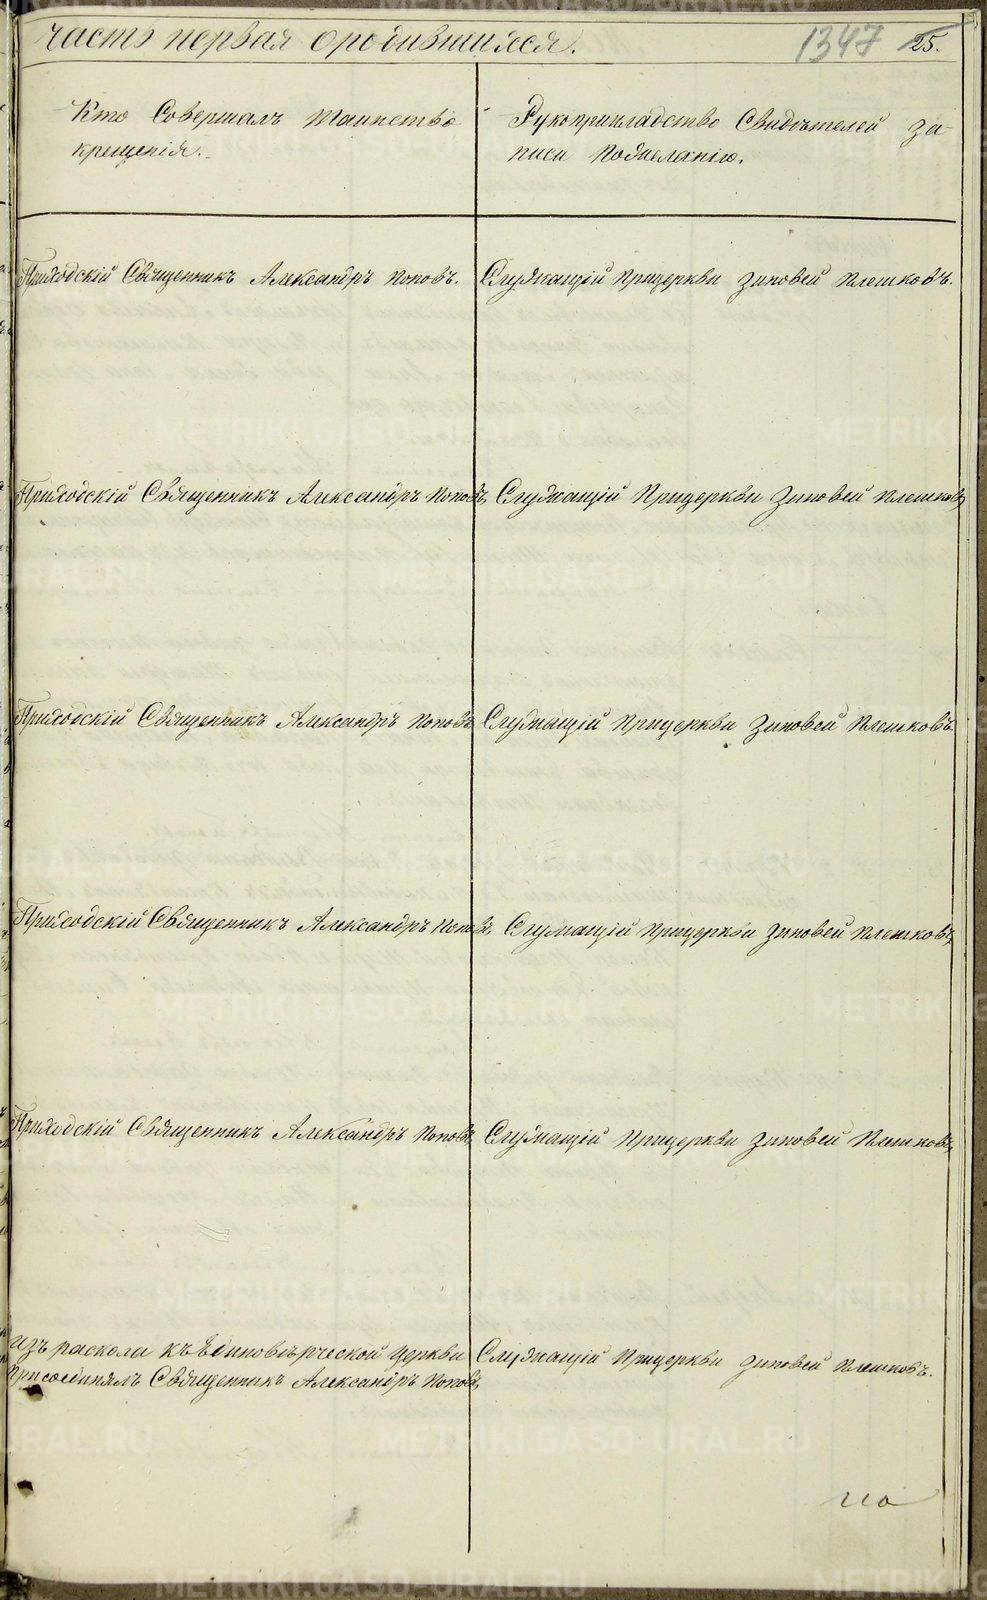 часть первая о родившихся.
1347 25.
Кто Совершалъ Таинство
крещенія.
Рукоприкладство Свидѣтелей за-
писи по желанію.
Приходскій Священникъ Александръ Поповъ. Служащій при церкви Зиновей Плешковъ.
Приходскій Священникъ Александръ Поповъ, Служащій при церкви Зиновей Плешковъ,
Приходскій Священникъ Александръ Поповъ Служащій при церкви Зиновей Плешковъ.
Приходскій Священникъ Александръ Поповъ, Служащій при церкви Зиновей Плешковъ,
Приходскій Священникъ Александръ Поповъ, Служащій при церкви Зиновей Плешковъ,
изъ раскола къ Единовѣрческой Церкви
присоединялъ Священникъ Александръ Поповъ,
Служащій при церкви Зиновей Плешковъ.
METRIKI.GASO-URAL.RU